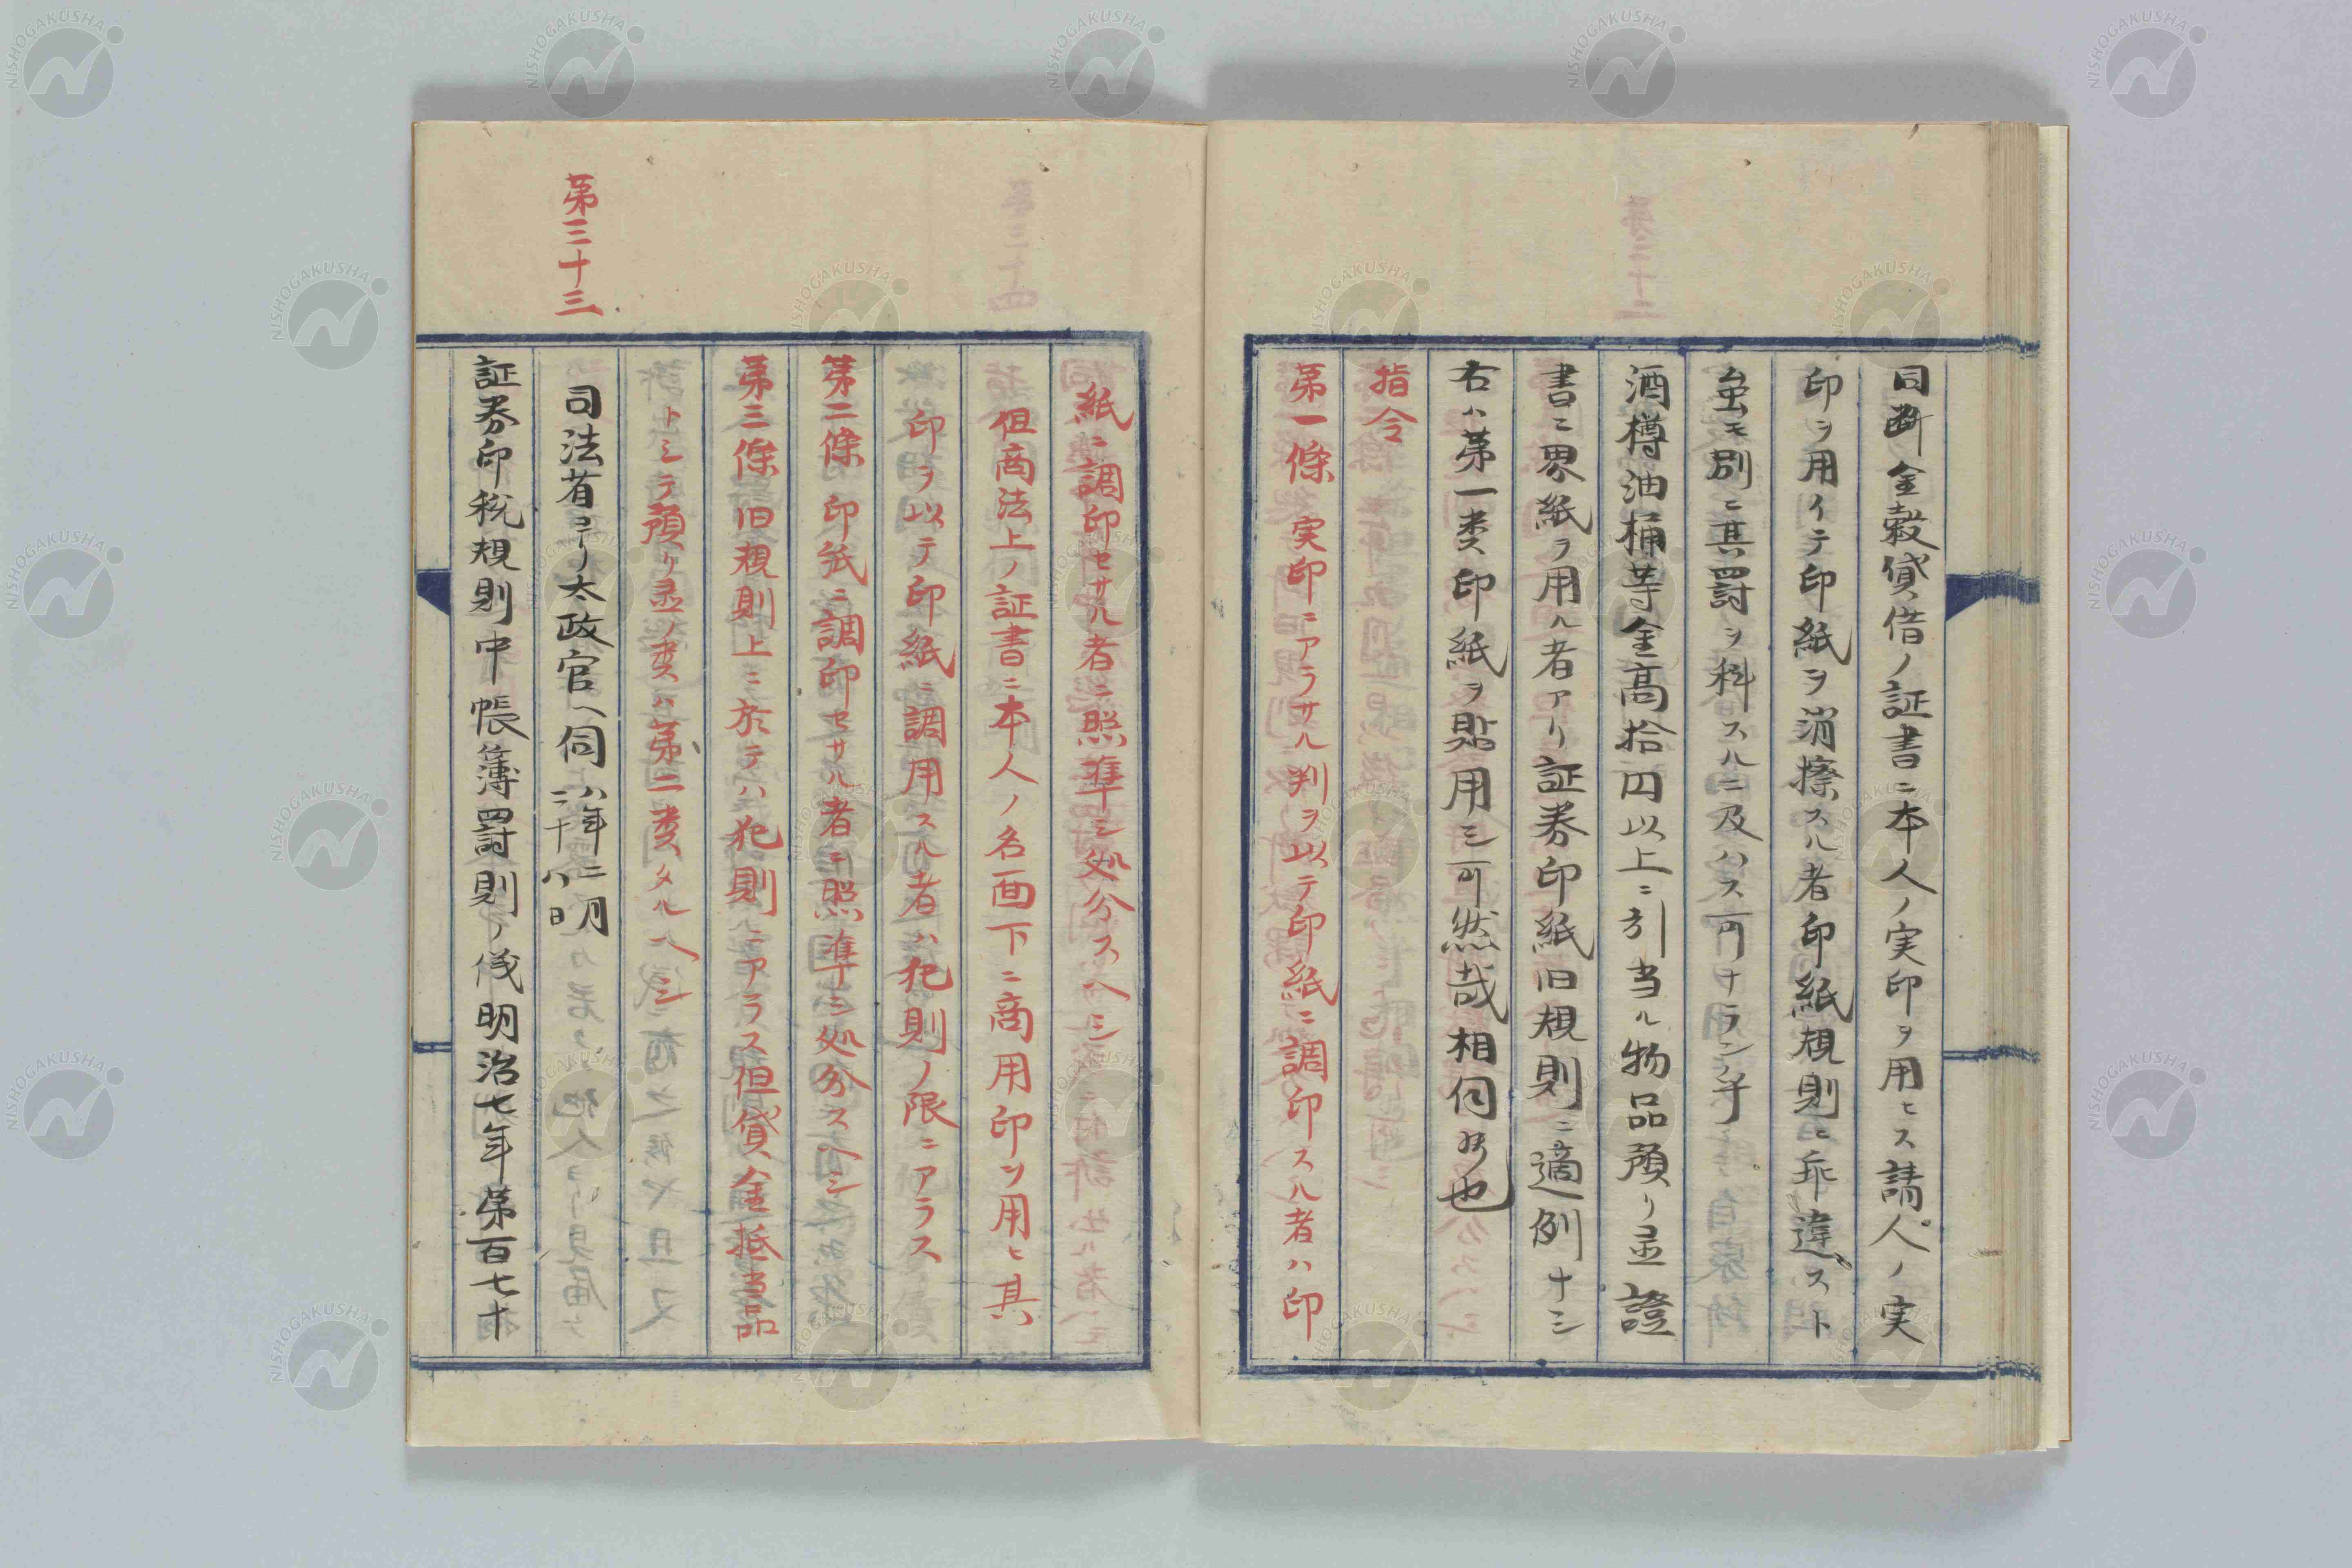 同断金穀貸借ノ証書ニ本人ノ実印ヲ用ヒス請人ノ実
印ヲ用イテ印紙ヲ消擦スル者印紙規則ヒ乖違スト
虽モ別ニ其罰ヲ科スルニ及ハス可ナランヿ乎
酒樽油桶等金高拾円以上ニ引当ル物品預リ並證
書ニ界紙ヲ用ル者アリ証券印紙旧規則ニ適例ナシ
右ハ第一類印紙ヲ貼用シ可然哉相伺候也
指令
第一條 実印ニアラサル判ヲ以テ印紙ニ調印スル者ハ印
紙ニ調印セサル者ニ照準シ処分スヘシ
但商法上ノ証書ニ本人ノ名面下ニ商用印ヲ用ヒ其
印ヲ以テ印紙ニ調用スル者ハ犯則ノ限ニアラス
第二條 印紙ニ調印セサル者ニ照準シ処分スヘシ
第三條旧規則上ニ於テハ犯則ニアラス但貸金抵当品
トシテ預リ並ノ類ハ第二類タルヘシ
第三十三
司法省ヨリ太政官ヘ伺 八年二月二十八日
証券印税規則中帳簿罰則ノ儀明治七年第百七十
NISHOGAKUSHA